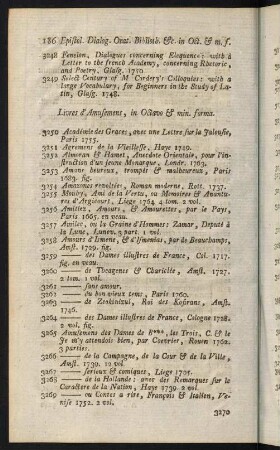 186 Epistol. Dialog. Orat. Biblioth. &c. in Oct. & m. f.
3248 Fenelon, Dialogues concerning Eloquence: with a
Letter to the french Academy, concerning Rhetoric,
and Poetry, Glasg. 1750.
3249 Select Century of M Cordery's Colloquies: with a
large Vocabulary, for Beginners in the Study of La-
tin, Glasg. 1748.
Livres d'Amusement, in Octavo & min. forma.
3250 Académie des Graces, avec une Lettre sur la Jalousie,
Paris 1755.
3251 Agrement de la Vieillesse, Haye 1749.
3252 Almoran & Hamet, Anecdote Orientale, pour l'in-
struction d'un jeune Monarque, Londr. 1763.
3253 Amant heureux, trompé & malheureux, Paris
1683. fig.
3254 Amazones revoltées, Roman moderne, Rott. 1737.
3255 Mouhy, Ami de la Vertu, ou Memoires & Avantu-
res d'Argicourt, Liege 1764. 4 tom. 2 vol.
3256 Amitiez, Amours, & Amourettes, par le Pays,
Paris 1665. en veau.
3257 Amilec, ou la Graine d'Hommes; Zamar, Deputé à
la Lune, Lunen, 3 part. 1 vol.
3258 Amours d'Ismene, & d'Ismenias, par le Beauchamps,
Amst. 1729. fig.
3259 —— des Dames illustres de France, Col. 1717.
fig. en veau.
3260 —— de Theagenes & Chariclée, Amst. 1727.
2 tom. 1 vol.
3261 —— sans amour.
3262 —— du bon vieux tems, Paris 1760.
3263 —— de Zeokinizul, Roi des Kofirans, Amst.
1746.
3264 —— des Dames illustres de France, Cologne 1728.
2 vol. fig.
3265 Amusemens des Dames de B***, les Trois, C. & le
Je m'y attendois bien, par Chevrier, Rouen 1762.
3 partie.
3266 —— de la Campagne, de la Cour & de la Ville,
Amst. 1739. 10 vol.
3267 —— serieux & comiques, Liege 1705.
3268 —— de la Hollande: avec des Remarques sur le
Caractere de la Nation, Haye 1739. 2 vol.
3269 —— ou Contes a rire, François & Italien, Ve-
nise 1752. 2 vol.
3270